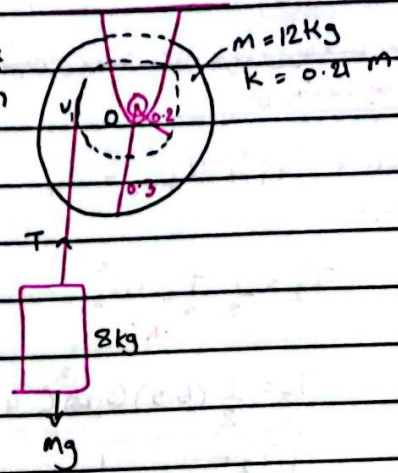 m = 12kg
k = 0.21 m
v₁
O
A
0.2
0.3
T
8kg
mg